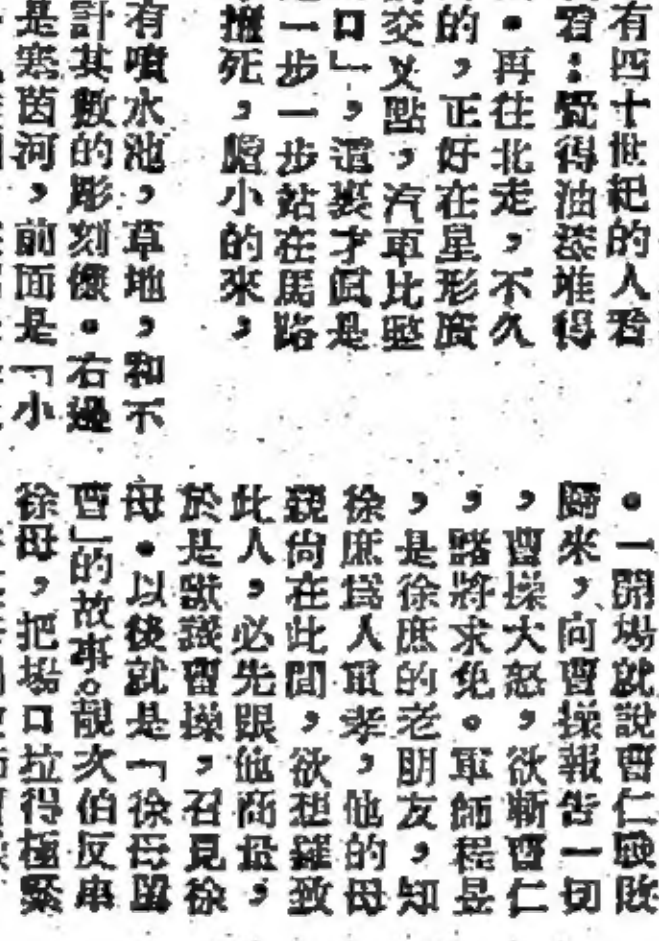 有四十世紀的人看
看：覺得油漆堆得
。再往北走，不久
的，正好在星形廣
交叉點，汽車比區
口」，這裏才眞是
一步一步站在馬路
撞死，膽小的來，
有噴水池，草地，和不
計其數的彫刻像。右邊
是塞茵河，前面是「小
。一開場就說曹仁戰敗
歸來，向曹操報告一切
，曹操大怒，欲斬曹仁
，諸將求免。軍師程昱
，是徐庶的老朋友，知
徐庶爲人至孝，他的母
親尙在此間，欲想羅致
此人，必先跟他商量，
於是獻議曹操，召見徐
母。以後就是「徐母罵
曹」的故事。龔次伯反串
徐母，把場口拉得極緊